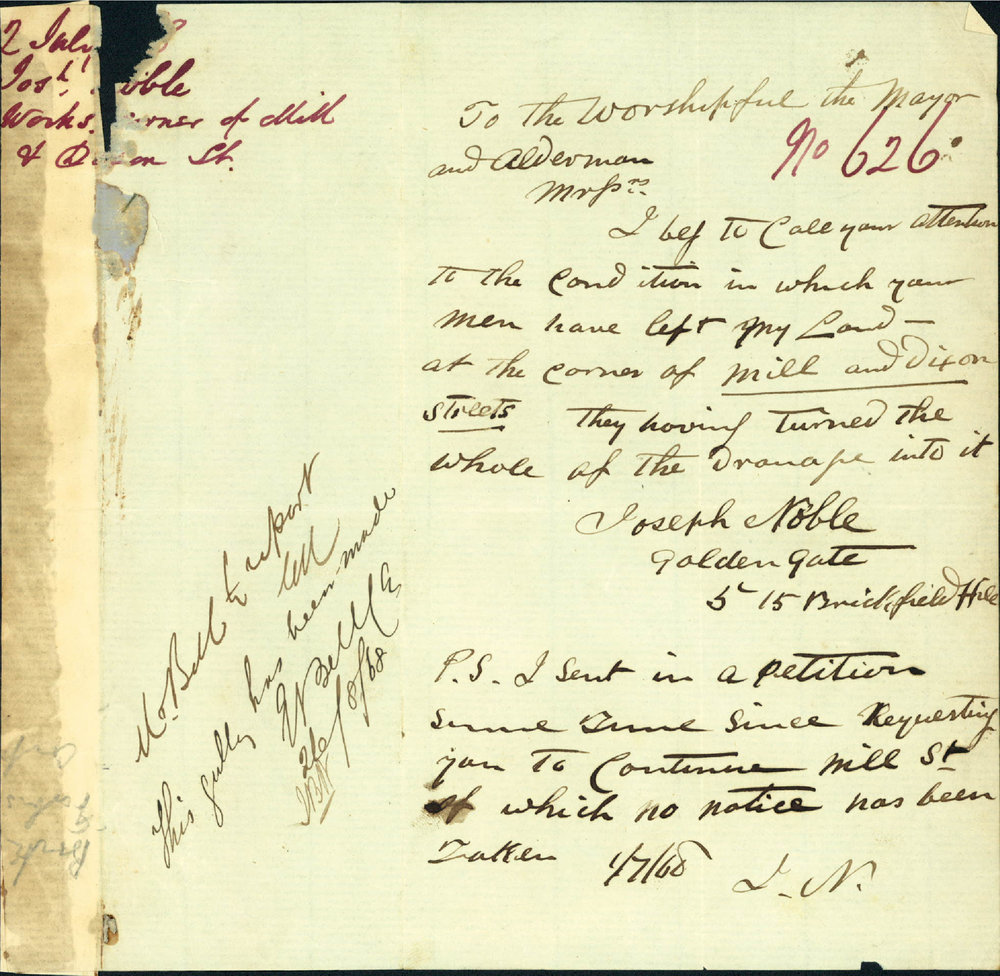 2 July
Josh Noble
Works. Corner of Mill
& Dixon St.
No 626
To the Worshipful the Mayor
and Alderman
I beg to Call your attention
to the Condition in which your
men have left my Land —
at the Corner of Mill and Dixon
Streets they having turned the
whole of the Dranage into it
Joseph Noble
Golden Gate
515 Brickfield Hill
P.S. I sent in a petition
some Time since Requesting
you To Continue Mill St
of which no notice has been
Taken 1/7/68
J. N.
Mr. Bell to report
This gully has been made
E Bell CE
26/8/68